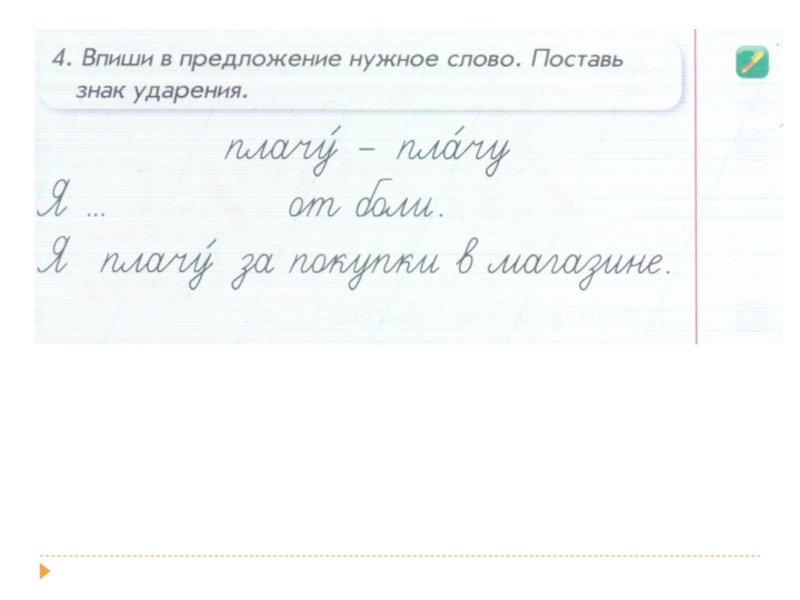 4. Впиши в предложение нужное слово. Поставь
знак ударения.
плачу́ – пла́чу
Я ... от боли.
Я плачу́ за покупки в магазине.